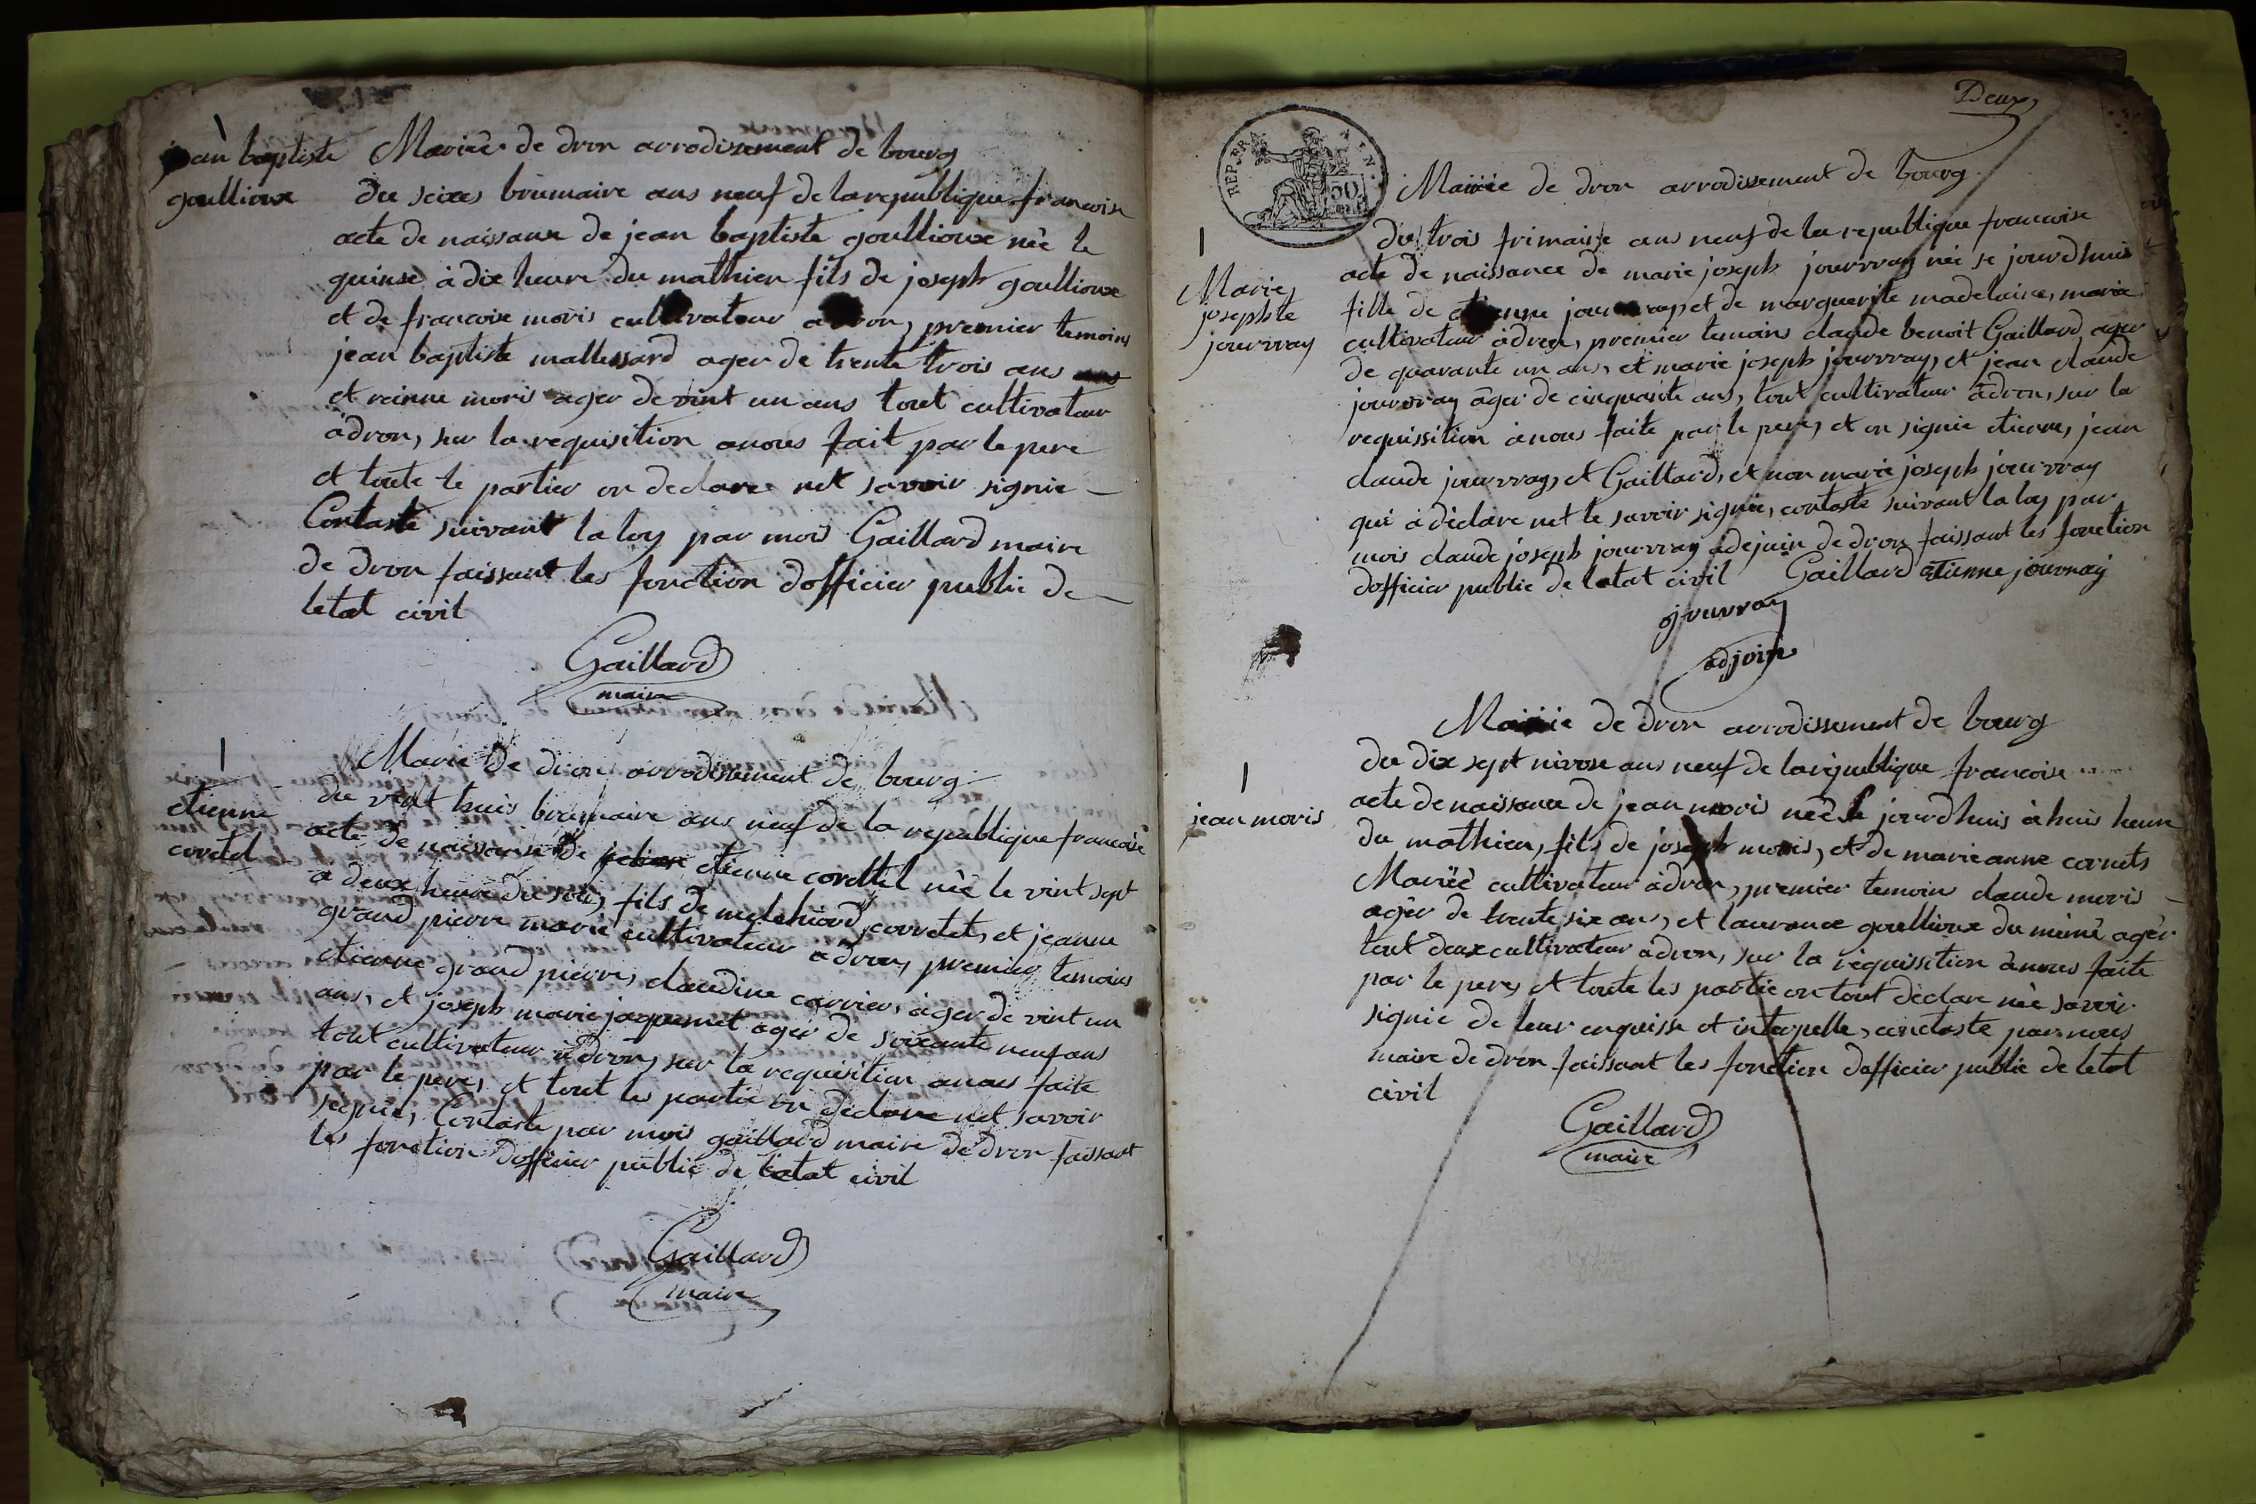 jean baptiste
goullioux
Mariéé de dron arrodissement de bourg
du seizes brumaire ans neuf de la republique francoise
acte de naissance de jean baptiste goullioux néè le
quinse à dix heure du mathien fils de joseph goullioux
et de francoise moris cultivateur a dron, premier temoins
jean baptiste mallessard ager de trente trois ans
et reinne moris ager de vint un ans tout cultivateur
àdron, sur la requisition anous fait par le pere
et toute le partier on declare net savoir signie
Contaste suivant la loy par mois Gaillard maire
de dron faissant les fonction dofficier public de
letat civil
Gaillard
maire
etienne
corétel
Marie de dron arrodissement de bourg
du vent huis brumaire ans neuf de la republique francoise
acte de naissanse de etienne coretel néè le vint sept
a deux heure du soir, fils de melchiord corretet, et jeanne
grand pierre marié cultivateur à dron, premier temoins
etienne grand pierre, claudine carrier, àger de vint un
ans, et joseph marie jaquemet àger de soixante neuf ans
tout cultivateur à dron, sur la requisition anous faite
par le pere, et tout les partie on declare net savoir
segnie, Contaste par mois gaillard maire de dron faissant
les fonction dofficier public de letat civil
Gaillard
maire
Deux
REP. FRA. 50
Mairie de dron arrodissement de bourg
1
Marie
josephte
jourvray
du trois frimaire ans neuf de la republique francoise
acte de naissance de marie joseph jourvray néé se jourdhuis
fille de etienne jourvray et de marguerite madelaine, marié
cultivateur àdron, premier temoins claude benoit Gaillard ager
de quarante un ans, et marie joseph jourvray, et jean claude
jourvray àger de cinquante ans, tout cultivateur àdron, sur la
requissition ànous faite par le pere, et on signie etienne, jean
claude jourvray, et Gaillard, et non marie joseph jourvray
qui à déclare net le savoir signie, contaste suivant la loy par
mois claude joseph jourvray adejuin de dron faissant les fonction
dofficier public de letat civil Gaillard etienne jouvray
jouvray
adjoin
Mairie de dron arrodissement de bourg
jean moris
du dix sept nivose ans neuf de la republique francoise
acte de naissance de jean moris néè le jourdhuis à huis heure
du mathien, fils de joseph moris, et de marie anne cornets
Mariéé cultivateur àdron, premier temoin claude moris
ager de trente six ans, et laurance goullioux du même agèr
tout deux cultivateur àdron, sur la requissition ànous faite
par le pere, et toute les partie on tout declare néè savoir
signie de leur enquisse et interpelle, contaste par nous
maire de dron faissant les fonction dofficier public de letat
civil
Gaillard
maire